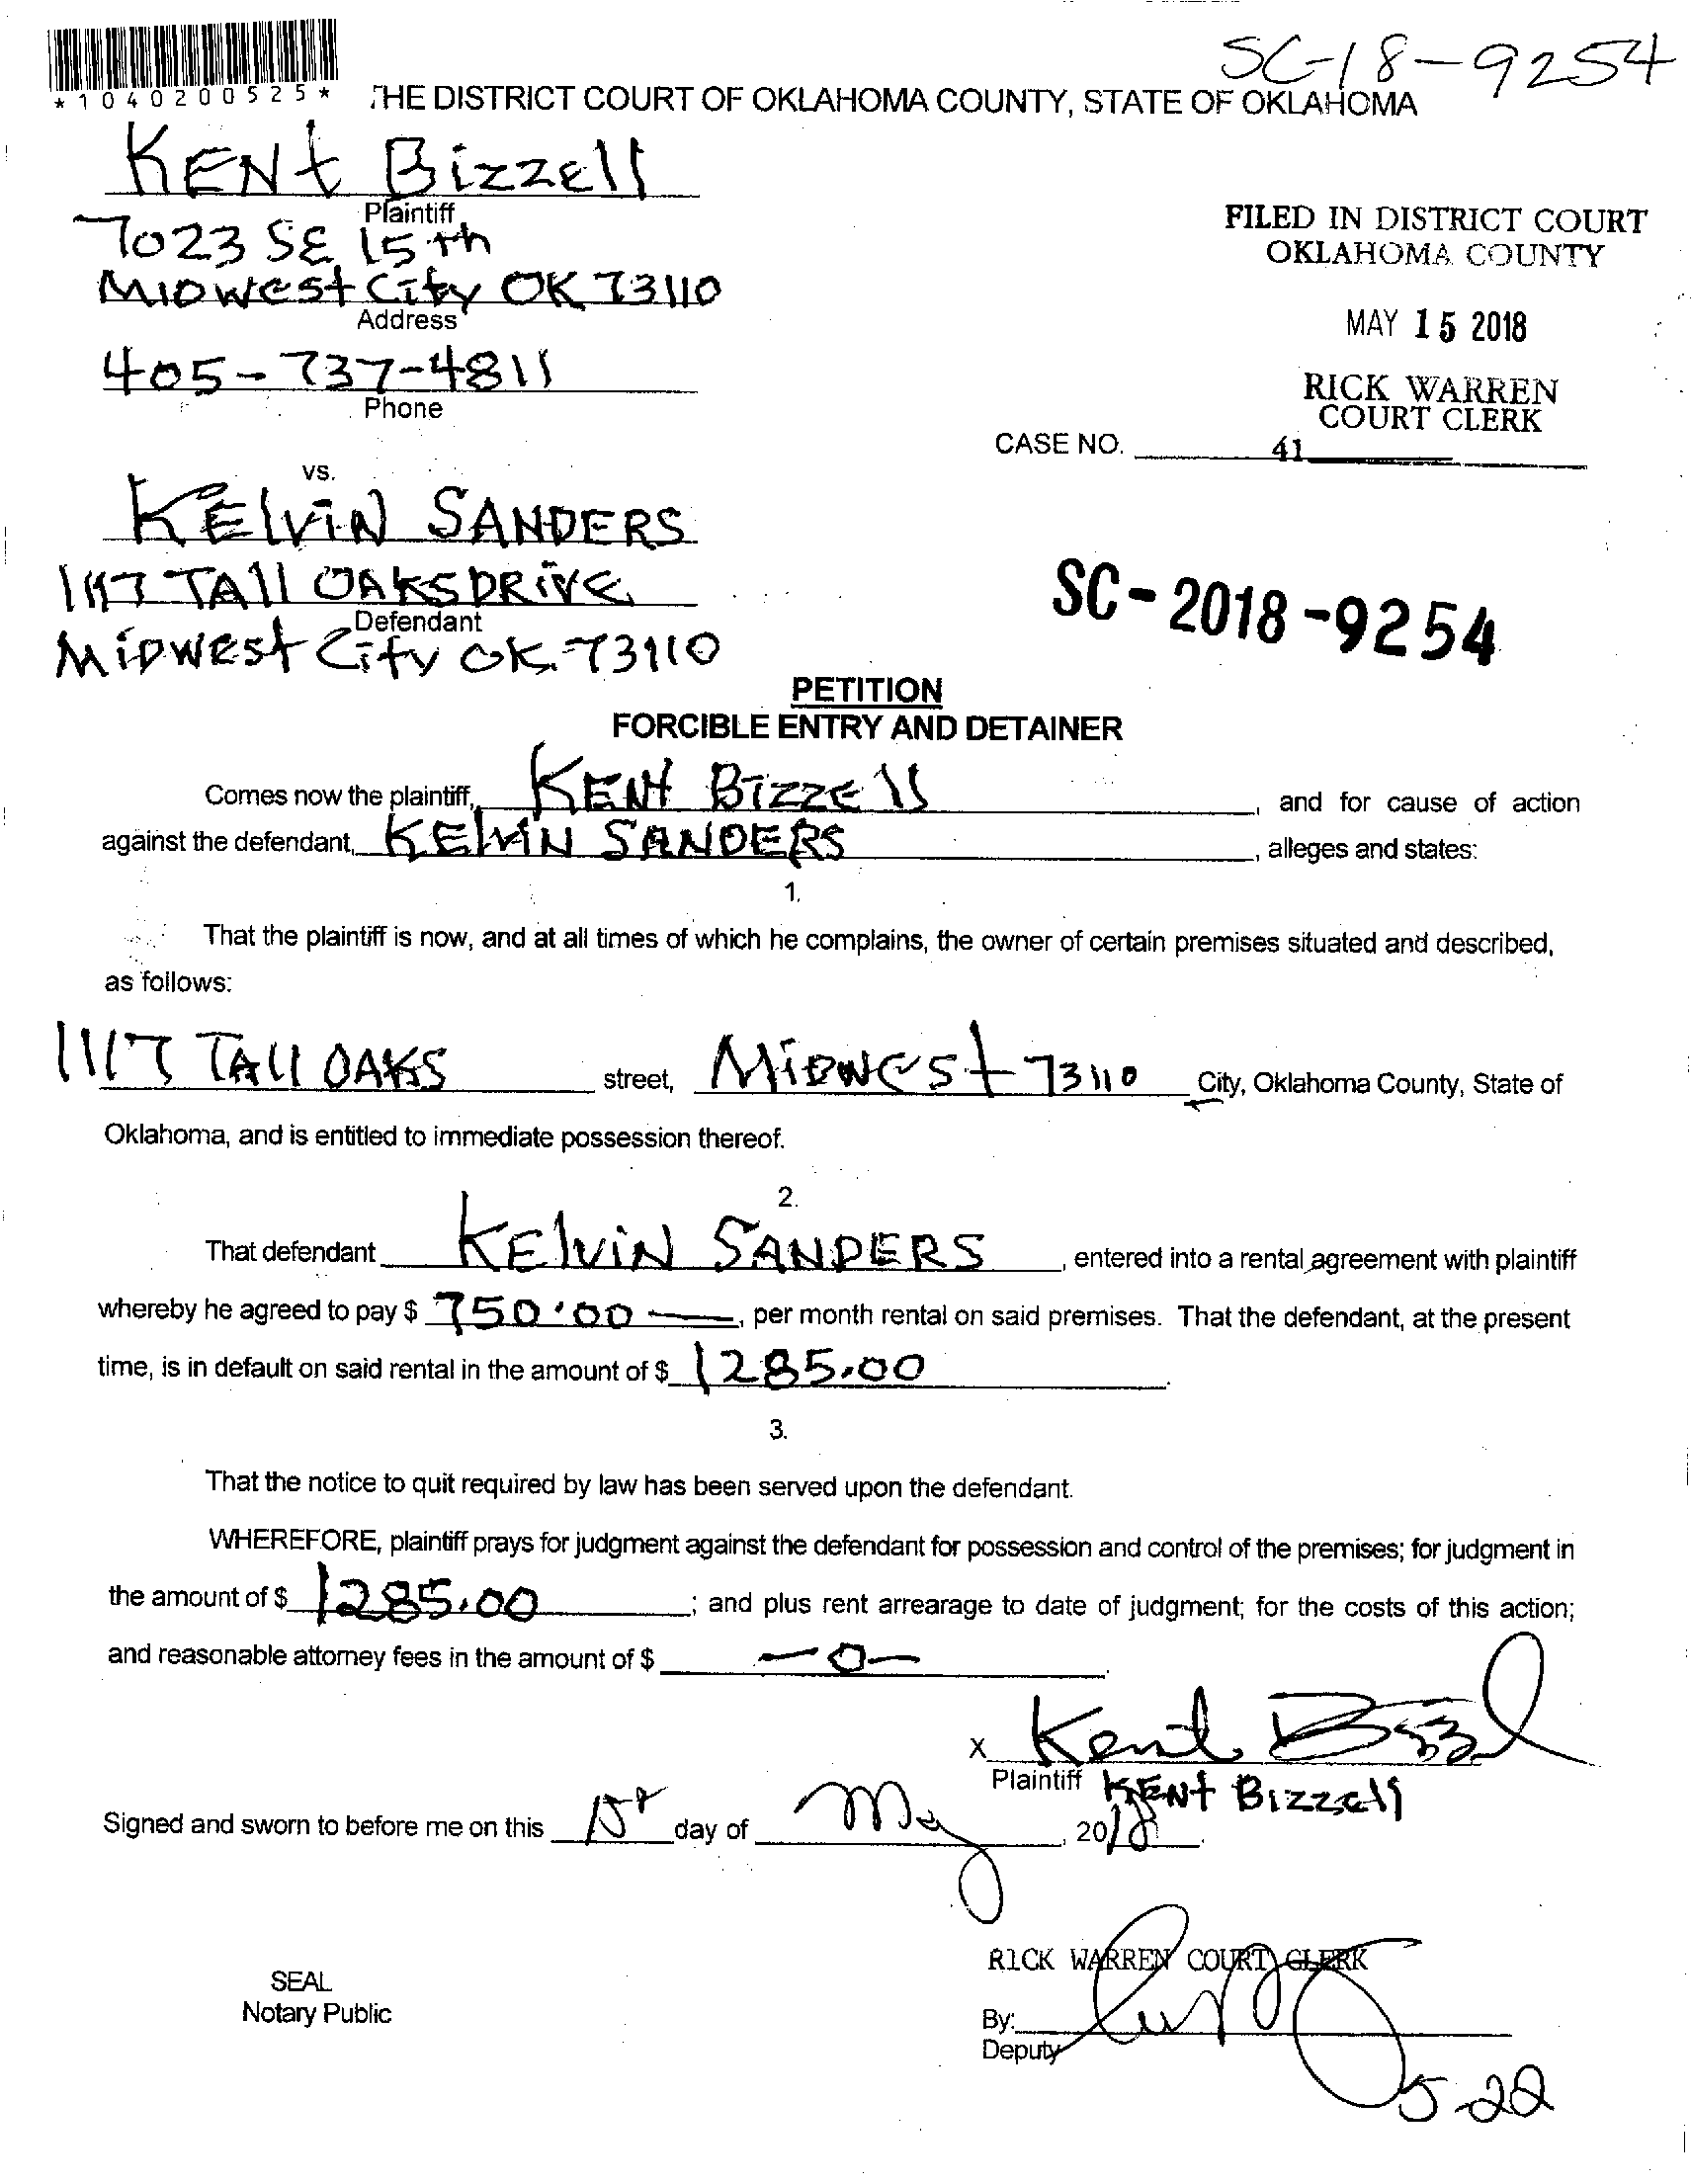 SC-18-9254
*1040200525*
THE DISTRICT COURT OF OKLAHOMA COUNTY, STATE OF OKLAHOMA
KENt Bizzell
Plaintiff
7023 SE 15th
Midwest City OK 73110
Address
405-737-4811
Phone
FILED IN DISTRICT COURT
OKLAHOMA COUNTY
MAY 15 2018
RICK WARREN
COURT CLERK
41
CASE NO.
vs.
KElviN SANDERS
1117 TAll OAKS DRiVE
Defendant
Midwest City OK. 73110
SC-2018-9254
PETITION
FORCIBLE ENTRY AND DETAINER
Comes now the plaintiff, KENt BizzEll, and for cause of action
against the defendant, KElviN SANDERS, alleges and states:
1.
That the plaintiff is now, and at all times of which he complains, the owner of certain premises situated and described,
as follows:
1117 TAll OAKS street, Midwest 73110 City, Oklahoma County, State of
Oklahoma, and is entitled to immediate possession thereof.
2.
That defendant KElviN SANDERS, entered into a rental agreement with plaintiff
whereby he agreed to pay $ 750.00 —, per month rental on said premises. That the defendant, at the present
time, is in default on said rental in the amount of $ 1285.00.
3.
That the notice to quit required by law has been served upon the defendant.
WHEREFORE, plaintiff prays for judgment against the defendant for possession and control of the premises; for judgment in
the amount of $ 1285.00; and plus rent arrearage to date of judgment; for the costs of this action;
and reasonable attorney fees in the amount of $ -0-.
X Kent Bizzell
Plaintiff KENt Bizzell
Signed and sworn to before me on this 15th day of May, 2018.
RICK WARREN COURT CLERK
SEAL
Notary Public
By:
Deputy
5-22